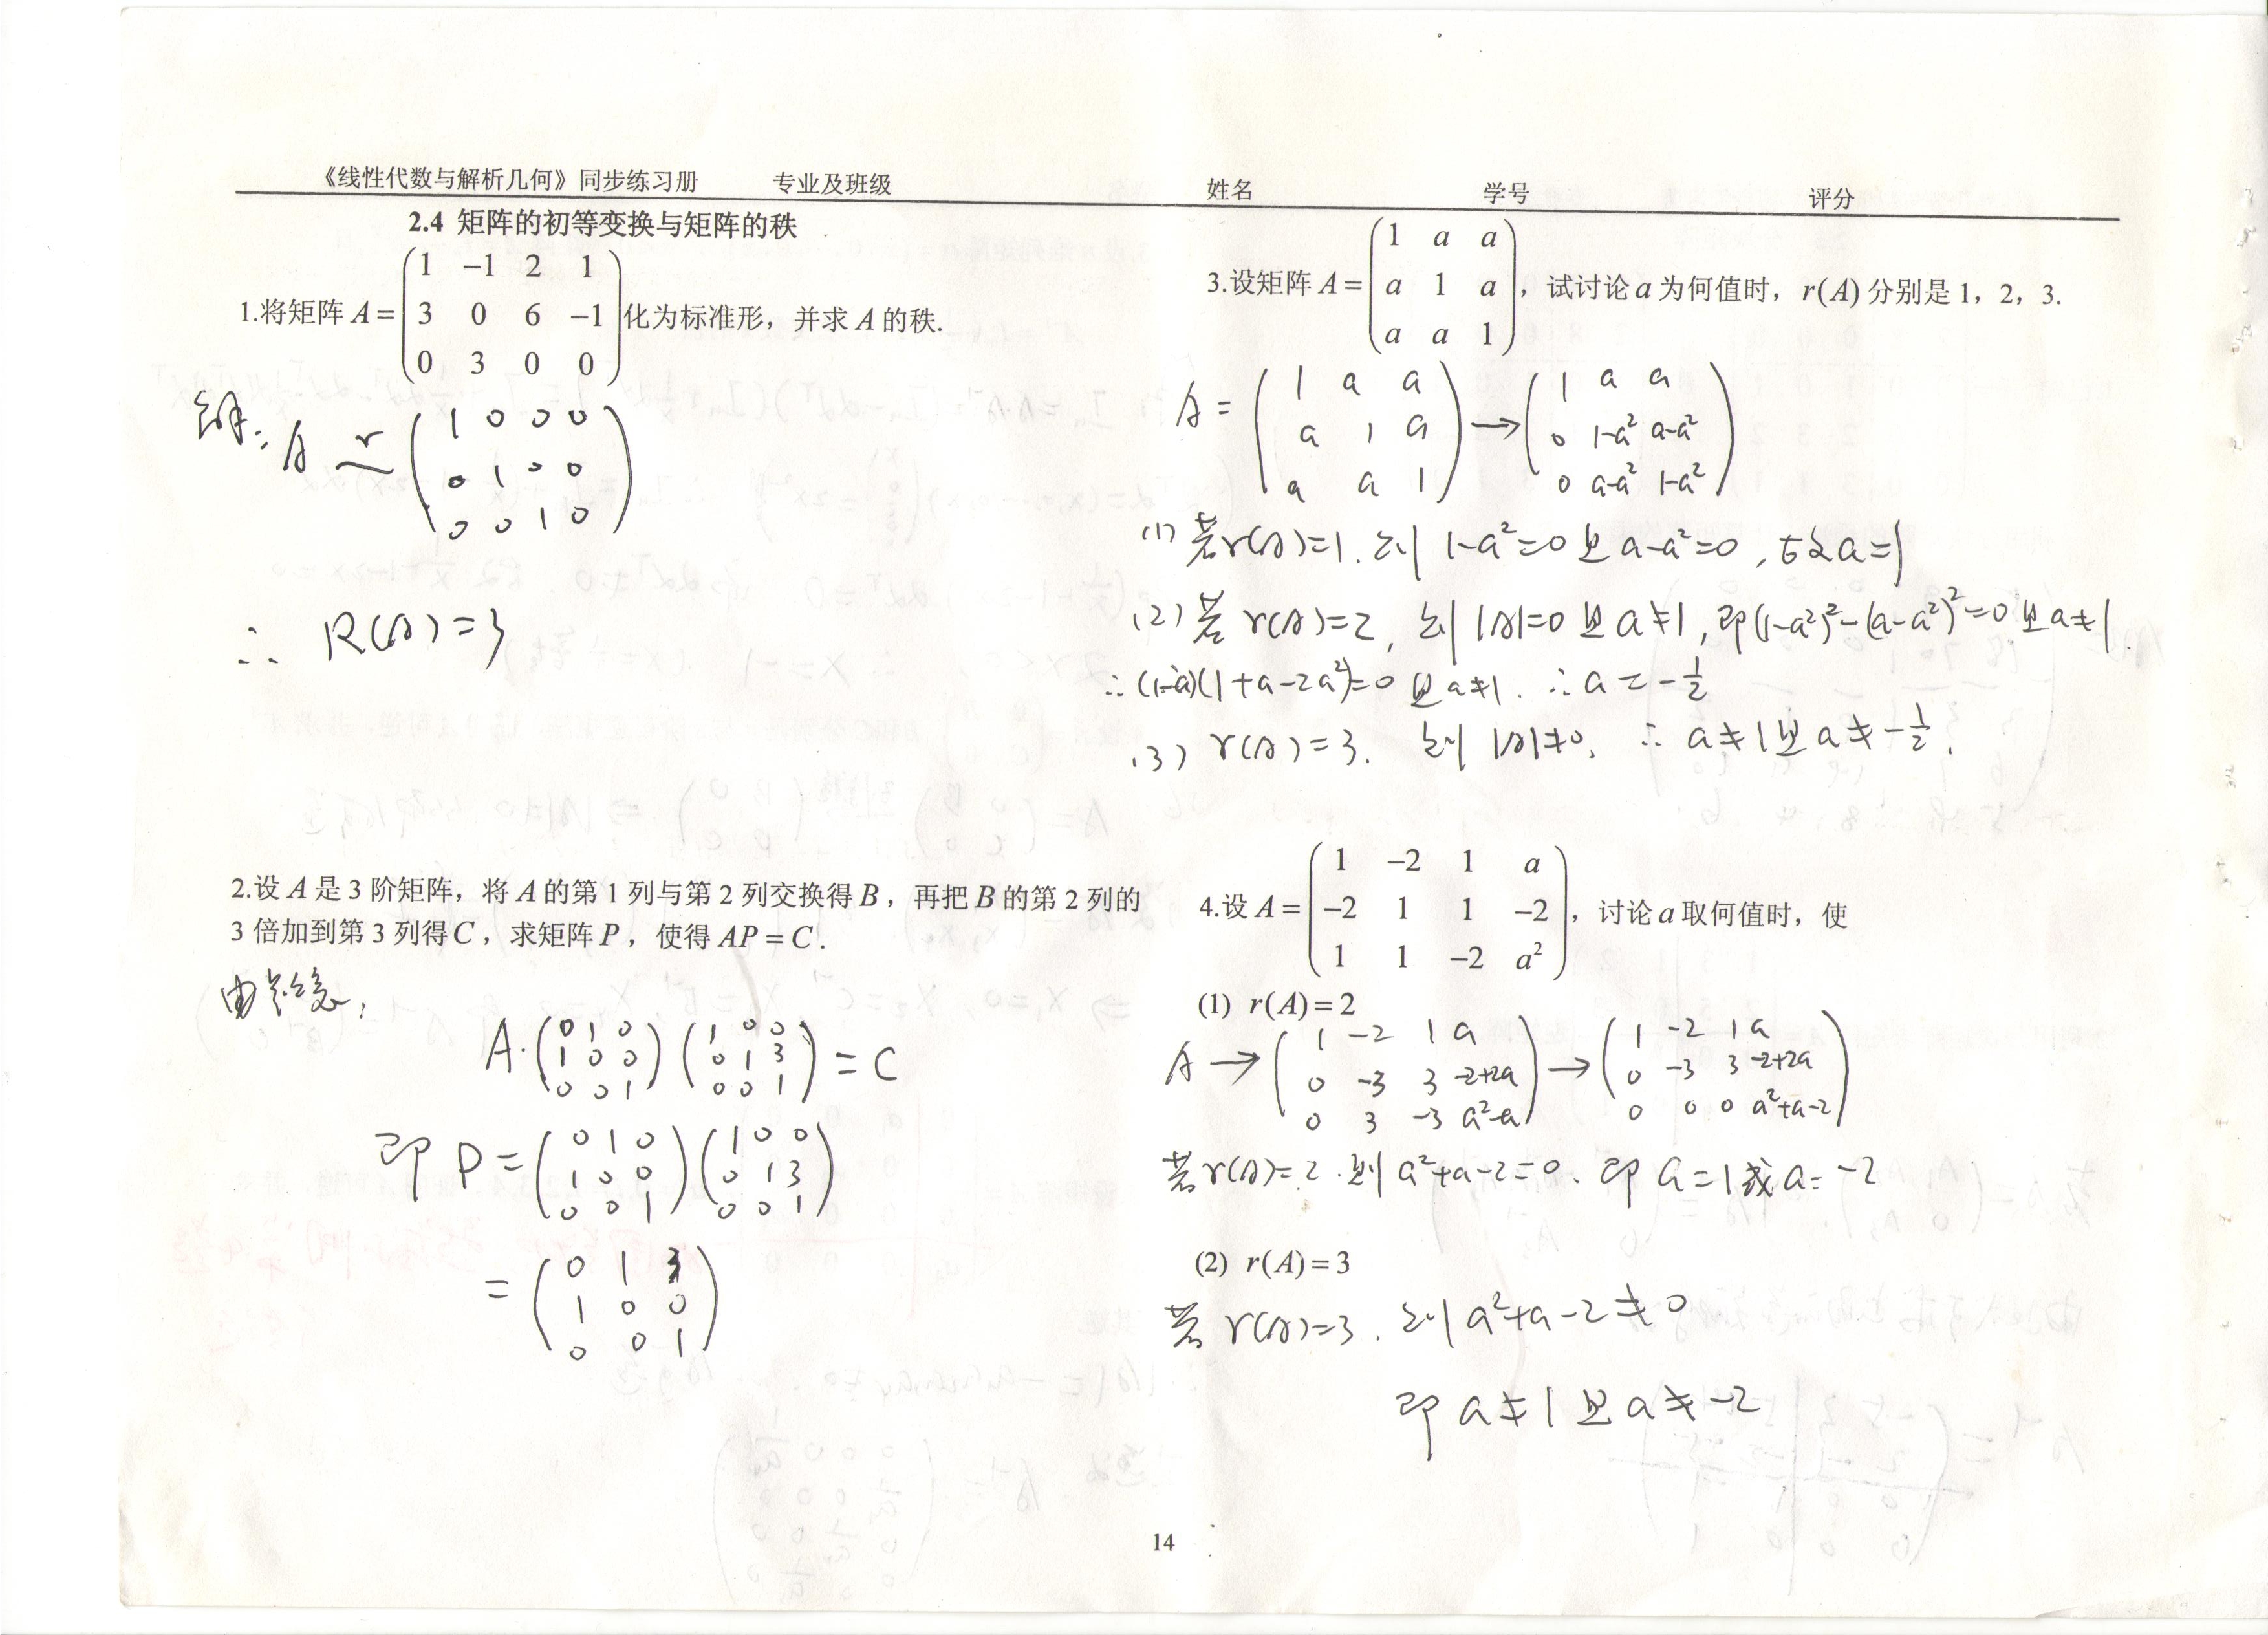 《线性代数与解析几何》同步练习册 专业及班级 姓名 学号 评分
2.4 矩阵的初等变换与矩阵的秩
1.将矩阵 A = (1 -1 2 1
3 0 6 -1
0 3 0 0) 化为标准形，并求 A 的秩.
解: A ~r (1 0 0 0
0 1 0 0
0 0 1 0)
∴ R(A)=3
2.设 A 是 3 阶矩阵，将 A 的第 1 列与第 2 列交换得 B，再把 B 的第 2 列的
3 倍加到第 3 列得 C，求矩阵 P，使得 AP = C.
由题意,
A·(0 1 0
1 0 0
0 0 1)(1 0 0
0 1 3
0 0 1) = C
即 P = (0 1 0
1 0 0
0 0 1)(1 0 0
0 1 3
0 0 1)
= (0 1 3
1 0 0
0 0 1)
3.设矩阵 A = (1 a a
a 1 a
a a 1)，试讨论 a 为何值时，r(A) 分别是 1，2，3.
A = (1 a a
a 1 a
a a 1) → (1 a a
0 1-a² a-a²
0 a-a² 1-a²)
(1) 若r(A)=1. 则 1-a²=0 且 a-a²=0, 故a=1
(2) 若 r(A)=2, 则 |A|=0 且 a≠1, 即(1-a²)²-(a-a²)²=0 且a≠1.
∴ (1-a)(1+a-2a²)=0 且a≠1. ∴ a = -1/2
(3) r(A)=3. 则 |A|≠0, ∴ a≠1且a≠-1/2.
4.设 A = (1 -2 1 a
-2 1 1 -2
1 1 -2 a²)，讨论 a 取何值时，使
(1) r(A) = 2
A → (1 -2 1 a
0 -3 3 -2+2a
0 3 -3 a²-a) → (1 -2 1 a
0 -3 3 -2+2a
0 0 0 a²+a-2)
若r(A)=2. 则 a²+a-2=0. 即 a=1或a=-2
(2) r(A) = 3
若 r(A)=3. 则 a²+a-2≠0
即 a≠1 且 a≠-2
14